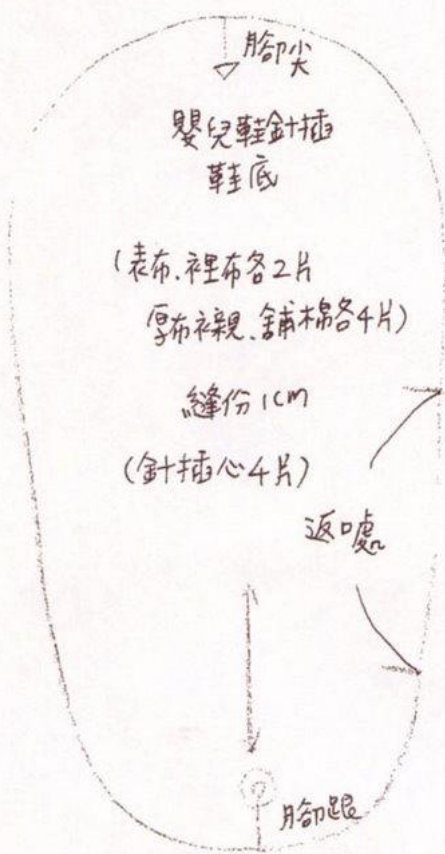 腳尖
嬰兒鞋針插
鞋底
(表布、裡布各2片
厚布襯、舖棉各4片)
縫份1cm
(針插心4片)
返口處
腳跟